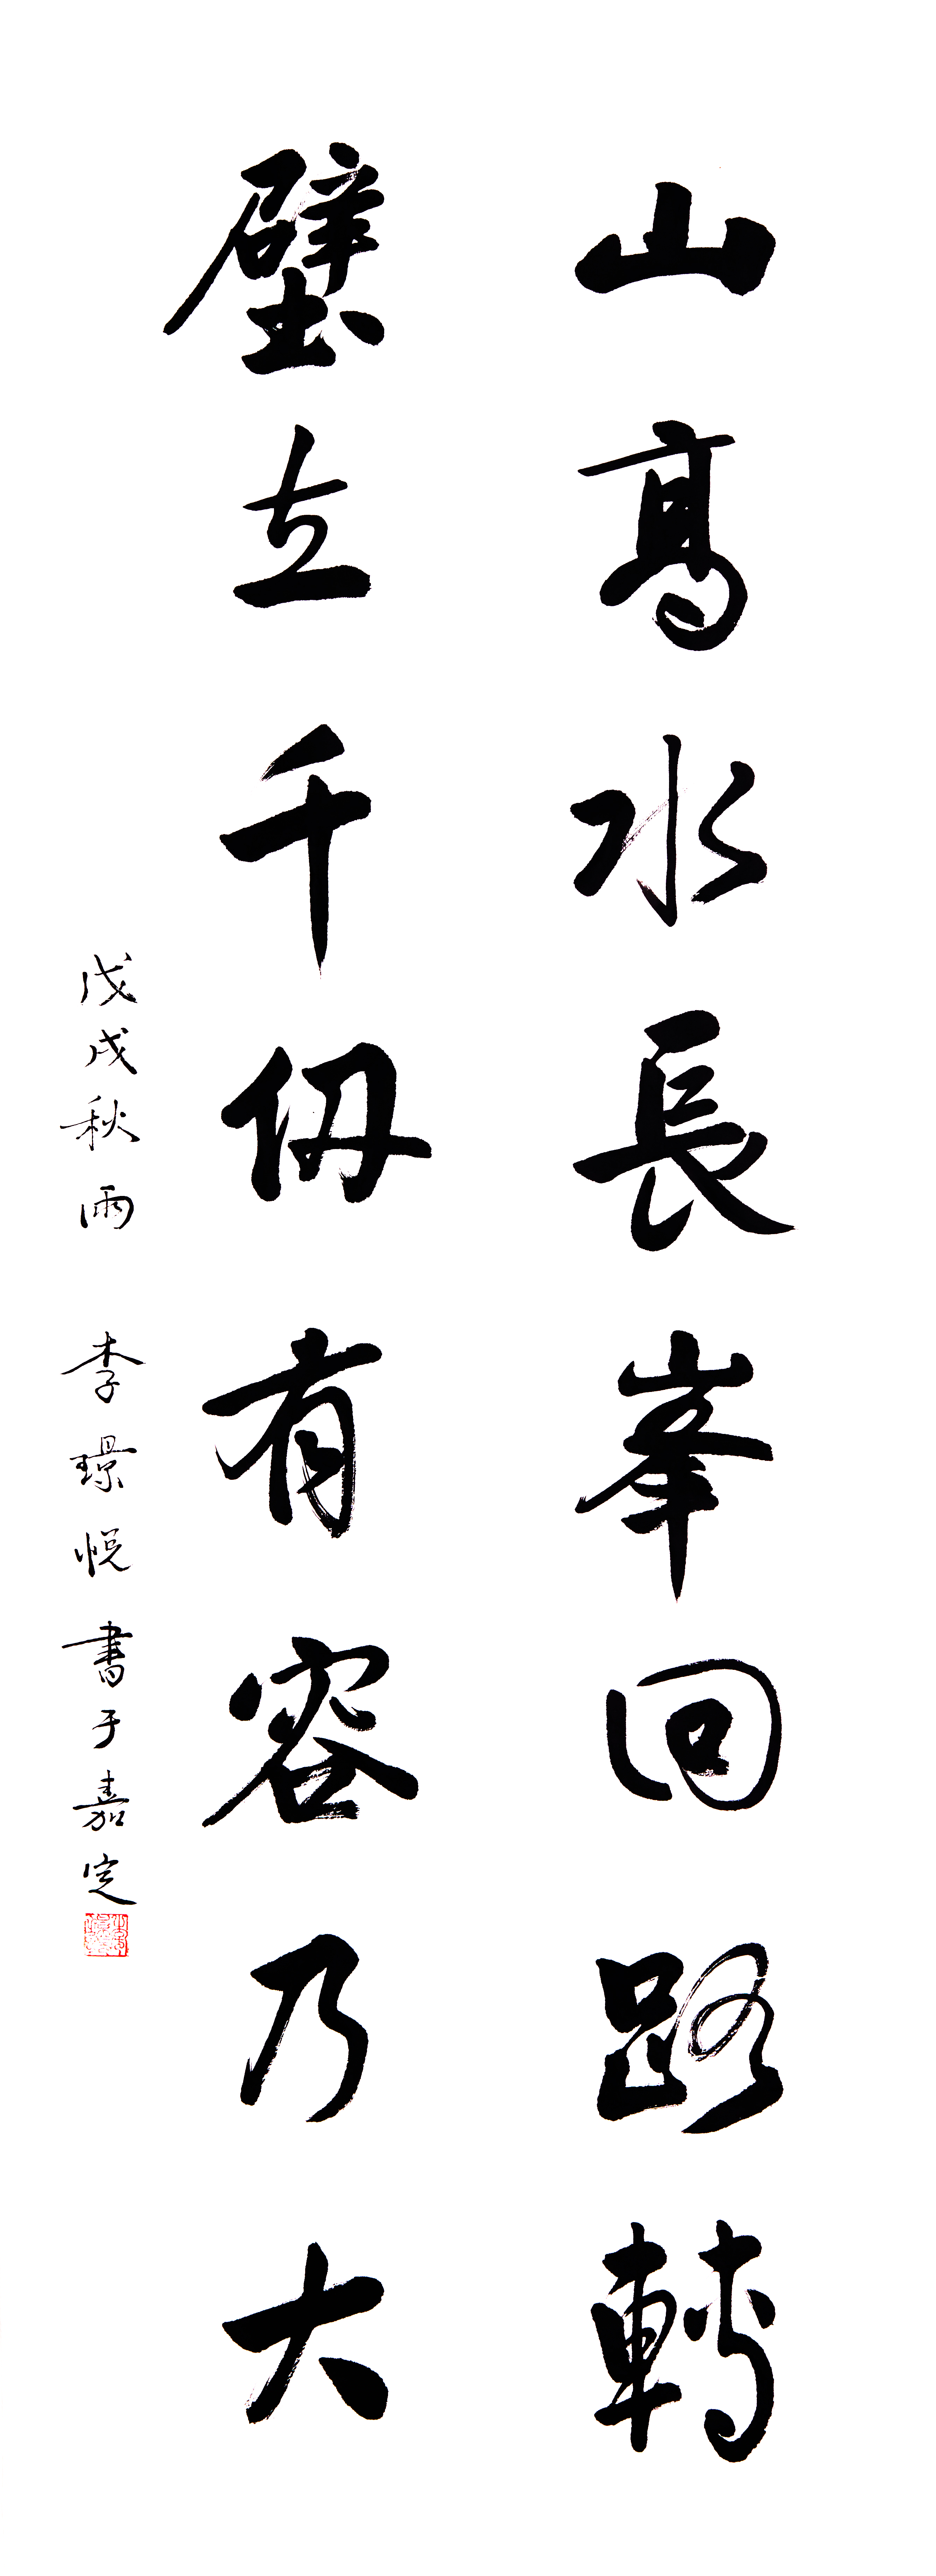 山高水長峯回路轉
壁立千仞有容乃大
戊戌秋雨 李璟悦書于嘉定